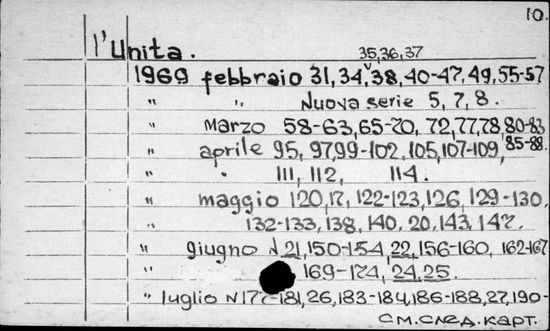 10.
l'Unita.
35,36,37
1969 febbraio 31, 34, 38, 40-47, 49, 55-57
" " Nuova serie 5, 7, 8.
" Marzo 58-63, 65-70, 72, 77, 78, 80-83
85-88.
" aprile 95, 97, 99-102, 105, 107-109,
" " 111, 112, 114.
" maggio 120, 17, 122-123, 126, 129-130,
132-133, 138, 140, 20, 143, 147.
" giugno N 21, 150-154, 22, 156-160, 162-167
" 169-174, 24, 25.
" luglio N 177-181, 26, 183-184, 186-188, 27, 190-
см. след. карт.